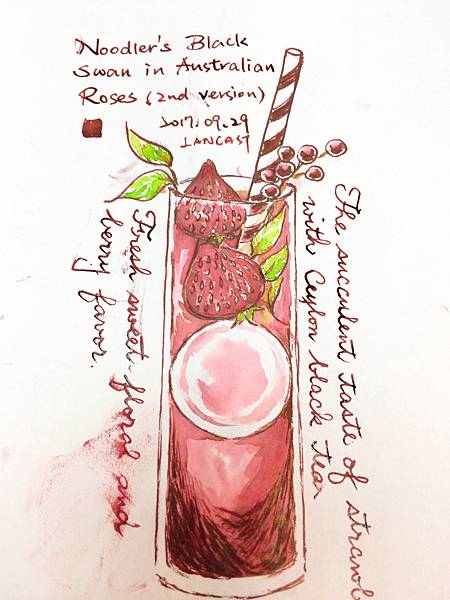 Noodler's Black
Swan in Australian
Roses (2nd version)
2017.09.29
LANCAST
Fresh sweet floral and
berry favor.
The succulent taste of strawb
with Ceylon black tea